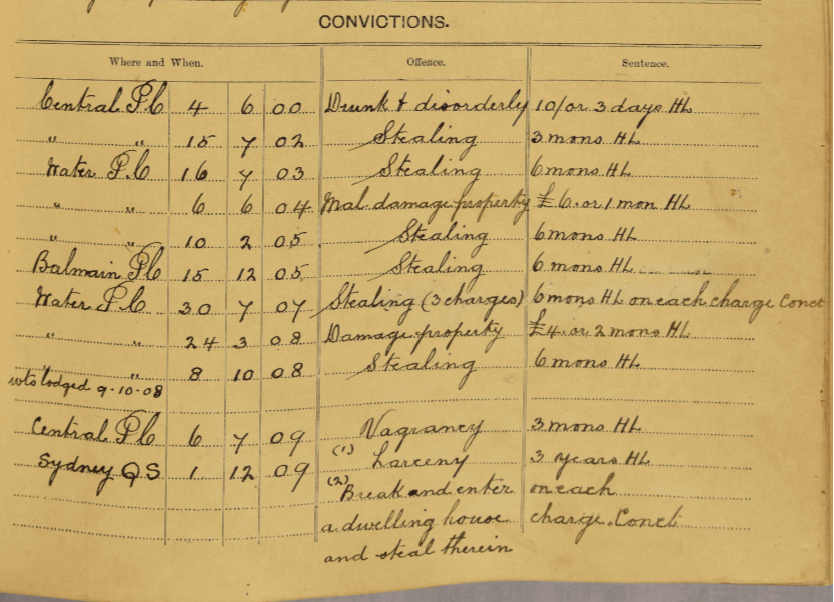 CONVICTIONS.
Where and When. Offence. Sentence.
Central P.C 4 6 00 Drunk & disorderly 10/or 3 days HL
" " 15 7 02 Stealing 3 mons HL
Water P.C 16 7 03 Stealing 6 mons HL
" " 6 6 04 Mal damage property £6. or 1 mon HL
" " 10 2 05 Stealing 6 mons HL
Balmain P.C 15 12 05 Stealing 6 mons HL
Water P.C 30 7 07 Stealing (3 charges) 6 mons HL on each charge Conct
" " 24 3 08 Damage property £4. or 2 mons HL
" 8 10 08 Stealing 6 mons HL
wts lodged 9-10-08
Central P.C 6 7 09 Vagrancy 3 mons HL
Sydney Q S 1 12 09 (1) Larceny 3 years HL
(2) Break and enter on each
a dwelling house charge. Conct
and steal therein